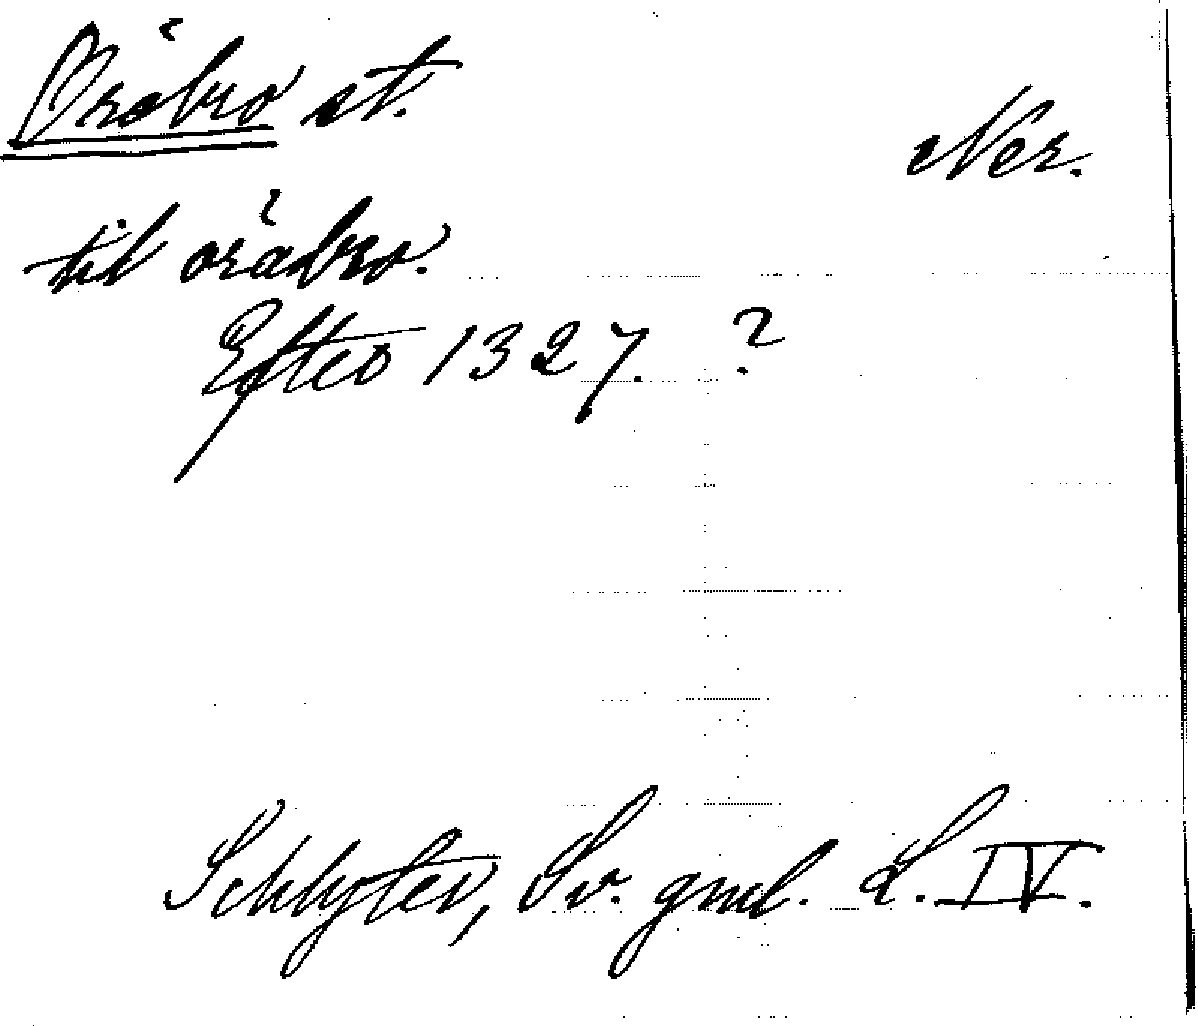 Örebro st.
Ner.
til oräbro.
Efter 1327. ?
Schlyter, Sv. gml. L. IV.